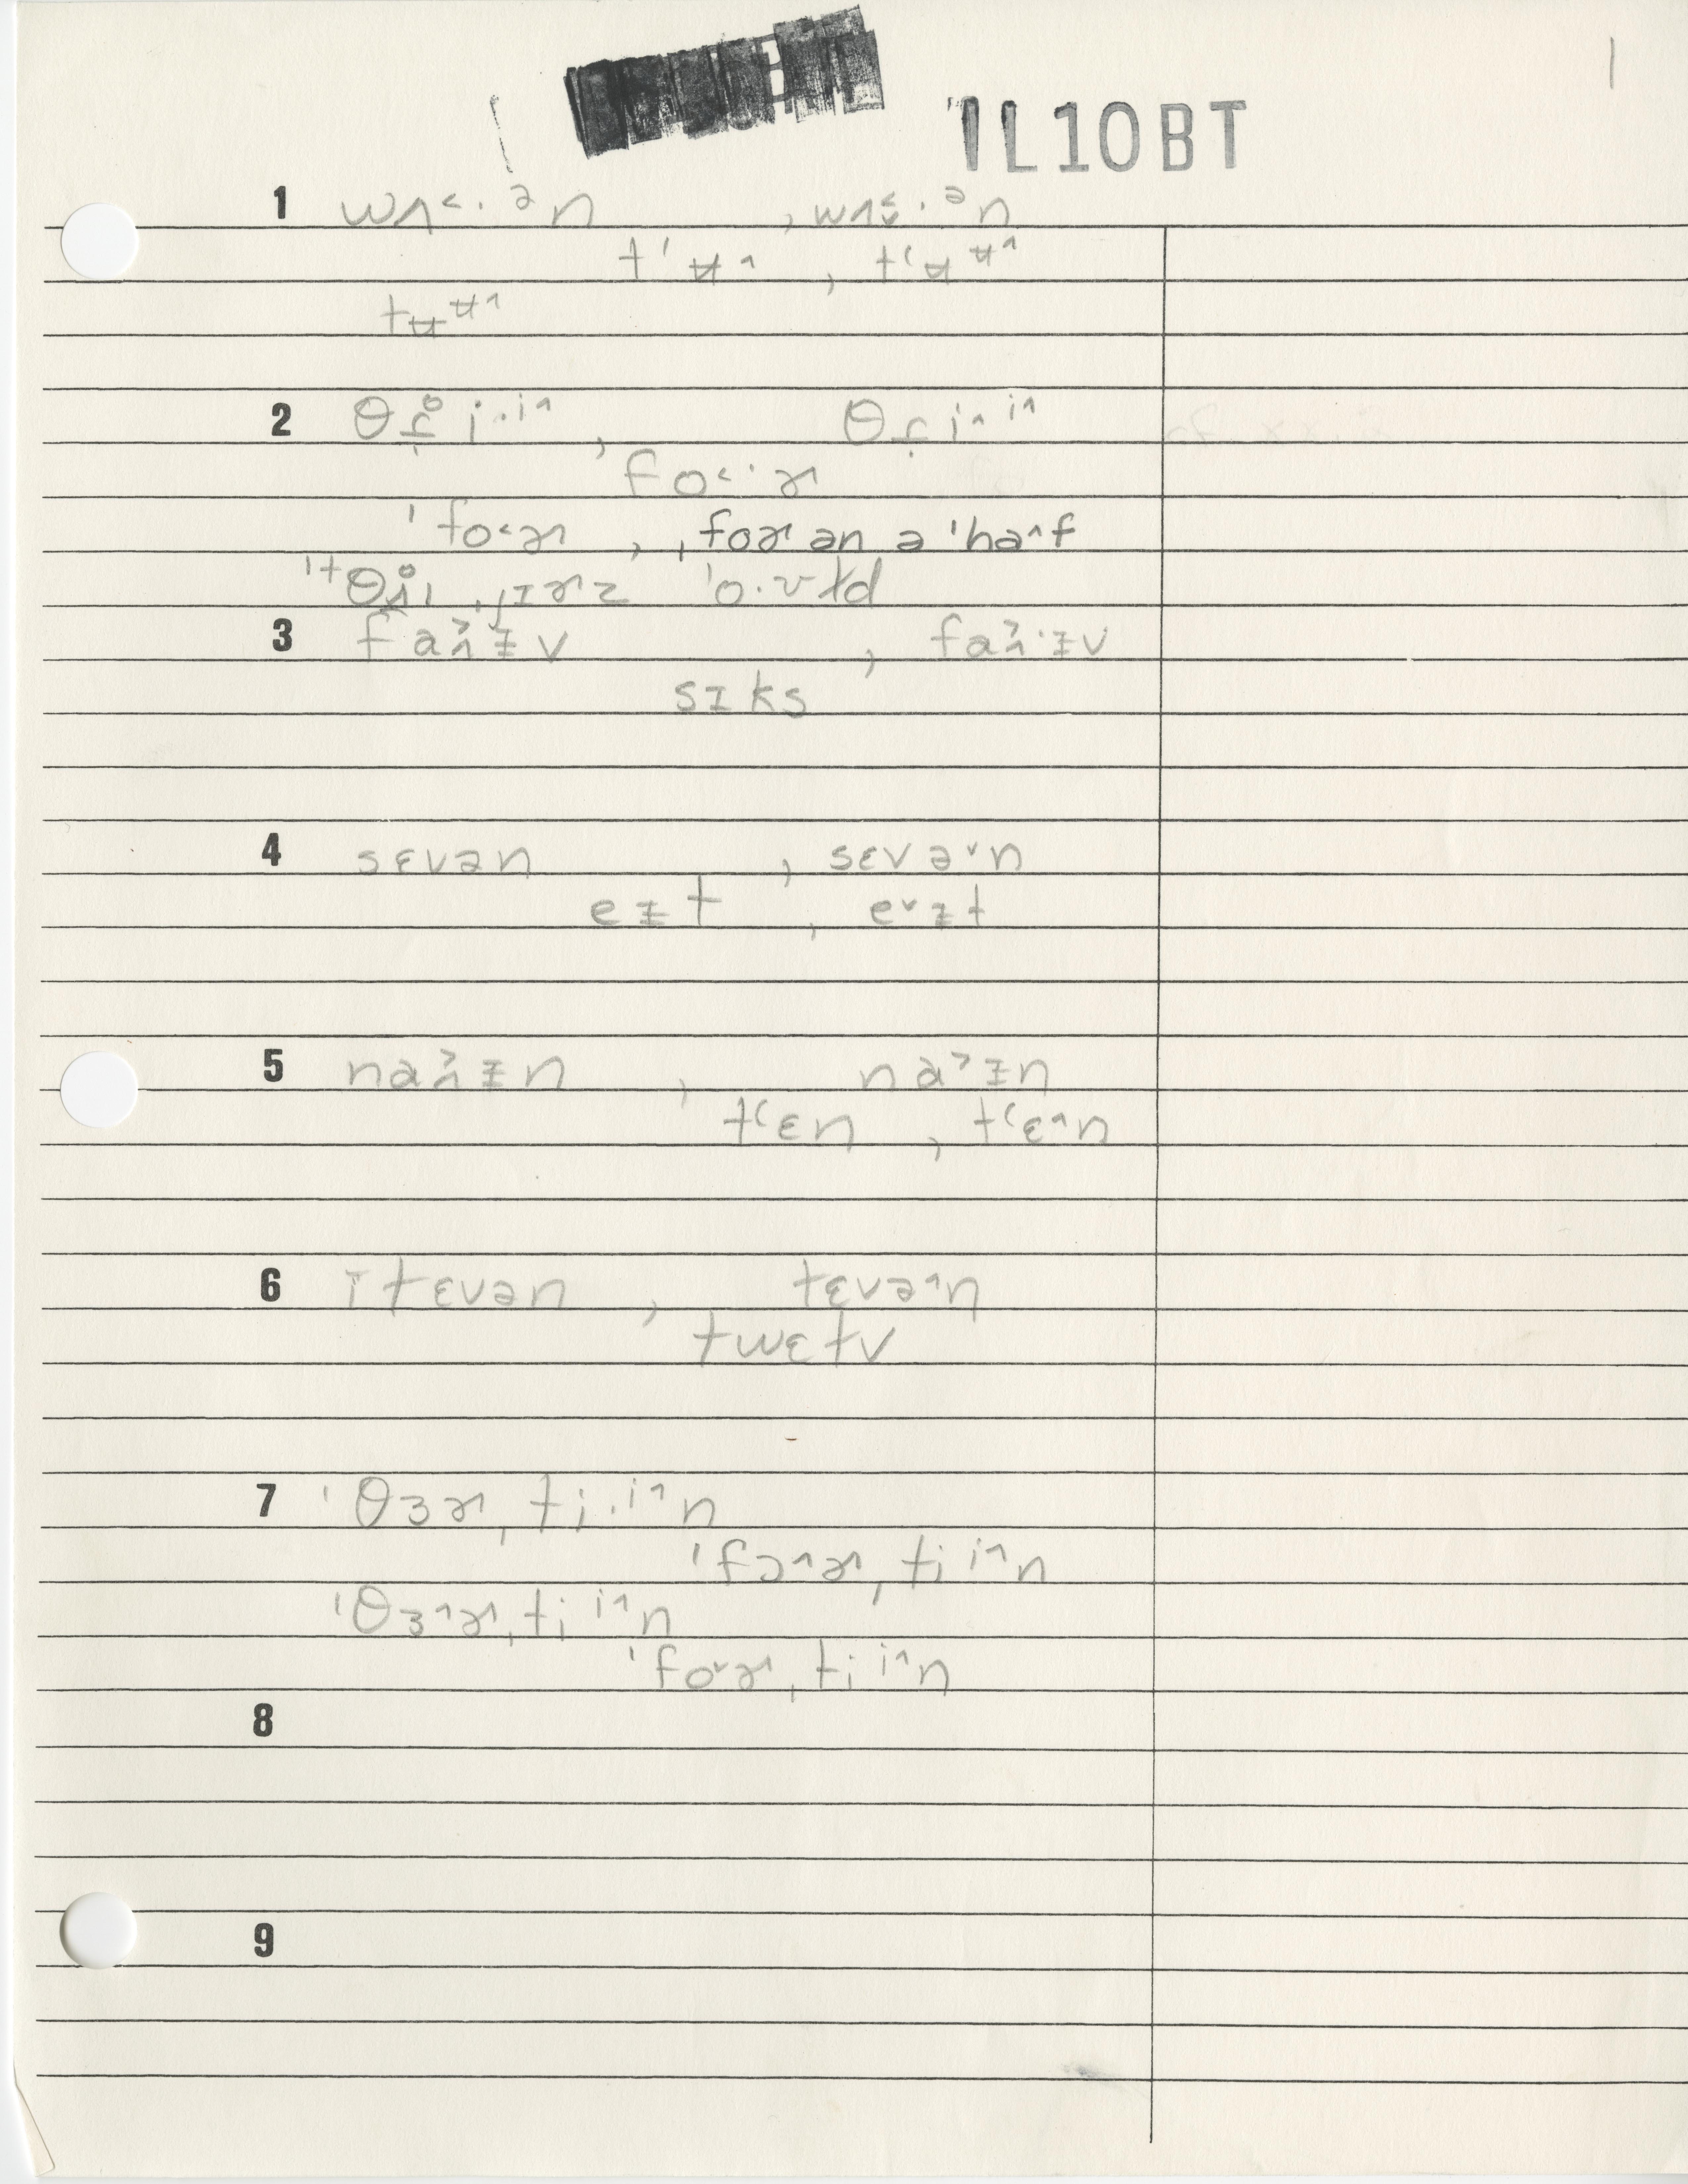 1
1L10BT
1 wʌ˂·ən , wʌ˂·ən
t'ʉ^ , t'ʉʉ^
tʉʉ^
2 θɾ̥i·i^ , θɾi^i^
fo˂·ɚ
'fo˂ɚ , ˌfoɚ ən ə 'ha^f
3 fa˃ɪv , fa˃·ɪv
sɪks
4 sɛvən , sɛvə˅n
eɪt , e˅ɪt
5 na˃ɪn , na˃ɪn
t'ɛn , t'ɛ^n
6 ɪtɛvən , tɛvə^n
twɛtv
7 'θɜɚˌti·i^n
'fɔ^ɚˌtii^n
'θɜ^ɚˌtii^n
'fo˅ɚˌtii^n
8
9